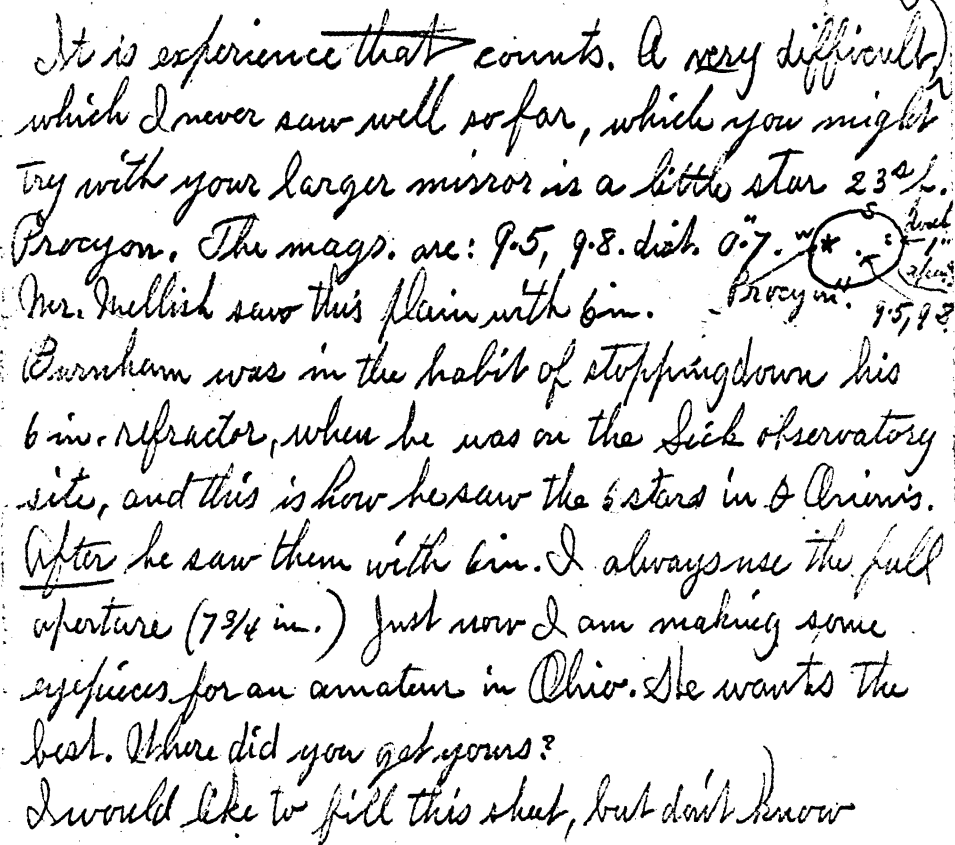 It is experience that counts. A very difficult,
which I never saw well so far, which you might
try with your larger mirror is a little star 23ˢ f.
Procyon. The mags. are: 9.5, 9.8. dist. 0."7. W S
Mr. Mellish saw this plain with 6in. Procyon. 9.5, 9.8
Burnham was in the habit of stopping down his
6 in. refractor, when he was on the Lick observatory
site, and this is how he saw the 6 stars in θ Orionis.
After he saw them with 6in. I always use the full
aperture (7 3/4 in.) Just now I am making some
eyepieces for an amateur in Ohio. He wants the
best. Where did you get yours?
I would like to fill this sheet, but don't know